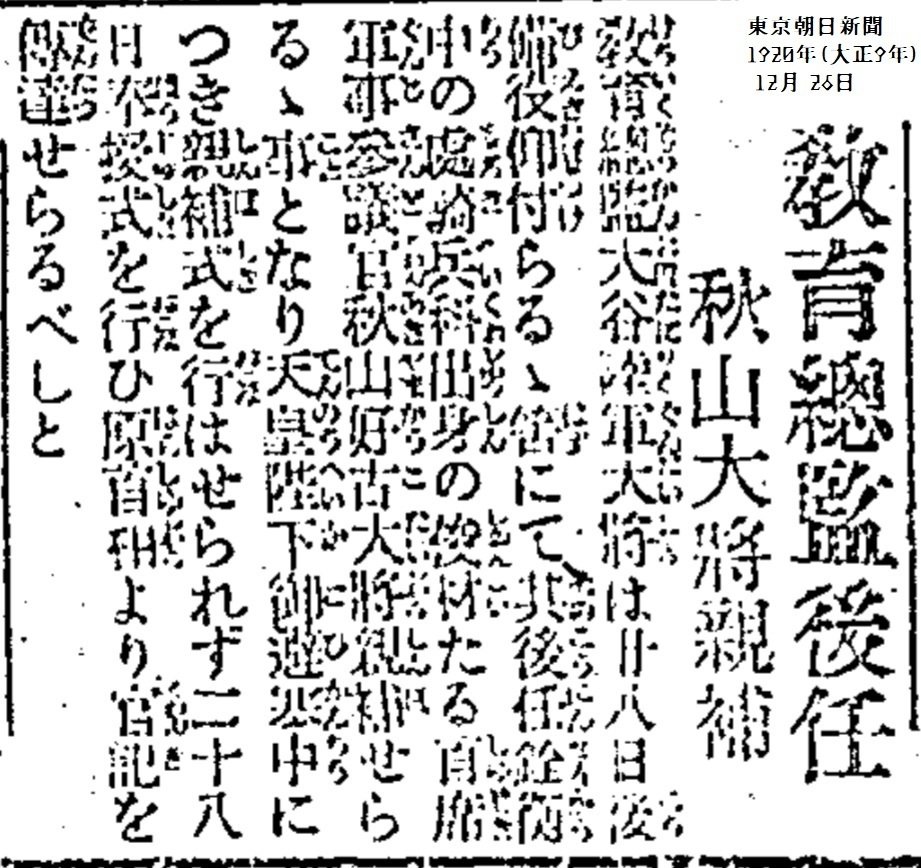 東京朝日新聞
1920年(大正9年)
12月 26日
教育總監後任
秋山大將親補
教育總監大谷陸軍大將は廿八日後
備役仰付らるゝ筈にて、其後任銓衡
中の處騎兵科出身の俊材たる首席
軍事參議官秋山好古大將親補せら
るゝ事となり天皇陛下御避寒中に
つき親補式を行はせられず二十八
日本授式を行ひ原首相より官記を
傳達せらるべしと